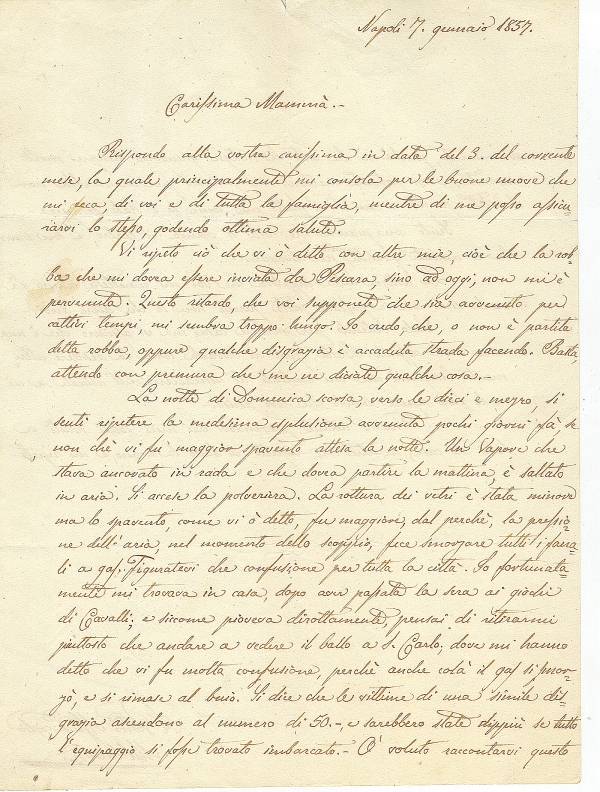 Napoli 7. gennaio 1857.
Carissima Mammà.-
Rispondo alla vostra carissima in data del 3. del corrente
mese, la quale principalmente mi consola per le buone nuove che
mi reca, di voi e di tutta la famiglia, mentre di me posso assicu-
rarvi lo stesso, godendo ottima salute.
Vi ripeto ciò che vi ò detto con altre mie, cioè che la rob
ba che mi dovea essere inviata da Pescara, sino ad oggi, non mi è
pervenuta. Questo ritardo, che voi supponete che sia avvenuto per
cattivi tempi, mi sembra troppo lungo. Io credo, che, o non è partita
detta robba, oppure qualche disgrazia è accaduta strada facendo. Basta,
attendo con premura che me ne diciate qualche cosa.-
La notte di Domenica scorsa, verso le dieci e mezzo, si
sentì ripetere la medesima esplusione avvenuta pochi giorni fà, se
non chè vi fu maggior spavento attesa la notte. Un Vapore che
stava ancorato in rada e che dovea partire la mattina, è saltato
in aria. Si accese la polveriera. La rottura dei vetri è stata minore
ma lo spavento, come vi ò detto, fu maggiore, dal perchè, la pressio-
ne dell'aria, nel momento dello scoppio, fece smorzare tutti i fana-
li a gas. Figuratevi che confusione per tutta la città. Io fortunata-
mente mi trovava in casa, dopo aver passata la sera ai giochi
di Cavalli; e siccome pioveva dirottamente, pensai di ritirarmi
piuttosto che andare a vedere il ballo a S. Carlo; dove mi hanno
detto che vi fu molta confusione, perchè anche colà il gas si smor-
zò, e si rimase al buio. Si dice che le vittime di una simile dis-
grazia ascendono al numero di 50.-, e sarebbero state dippiù se tutto
l'equipaggio si fosse trovato imbarcato.- O' voluto raccontarvi questo